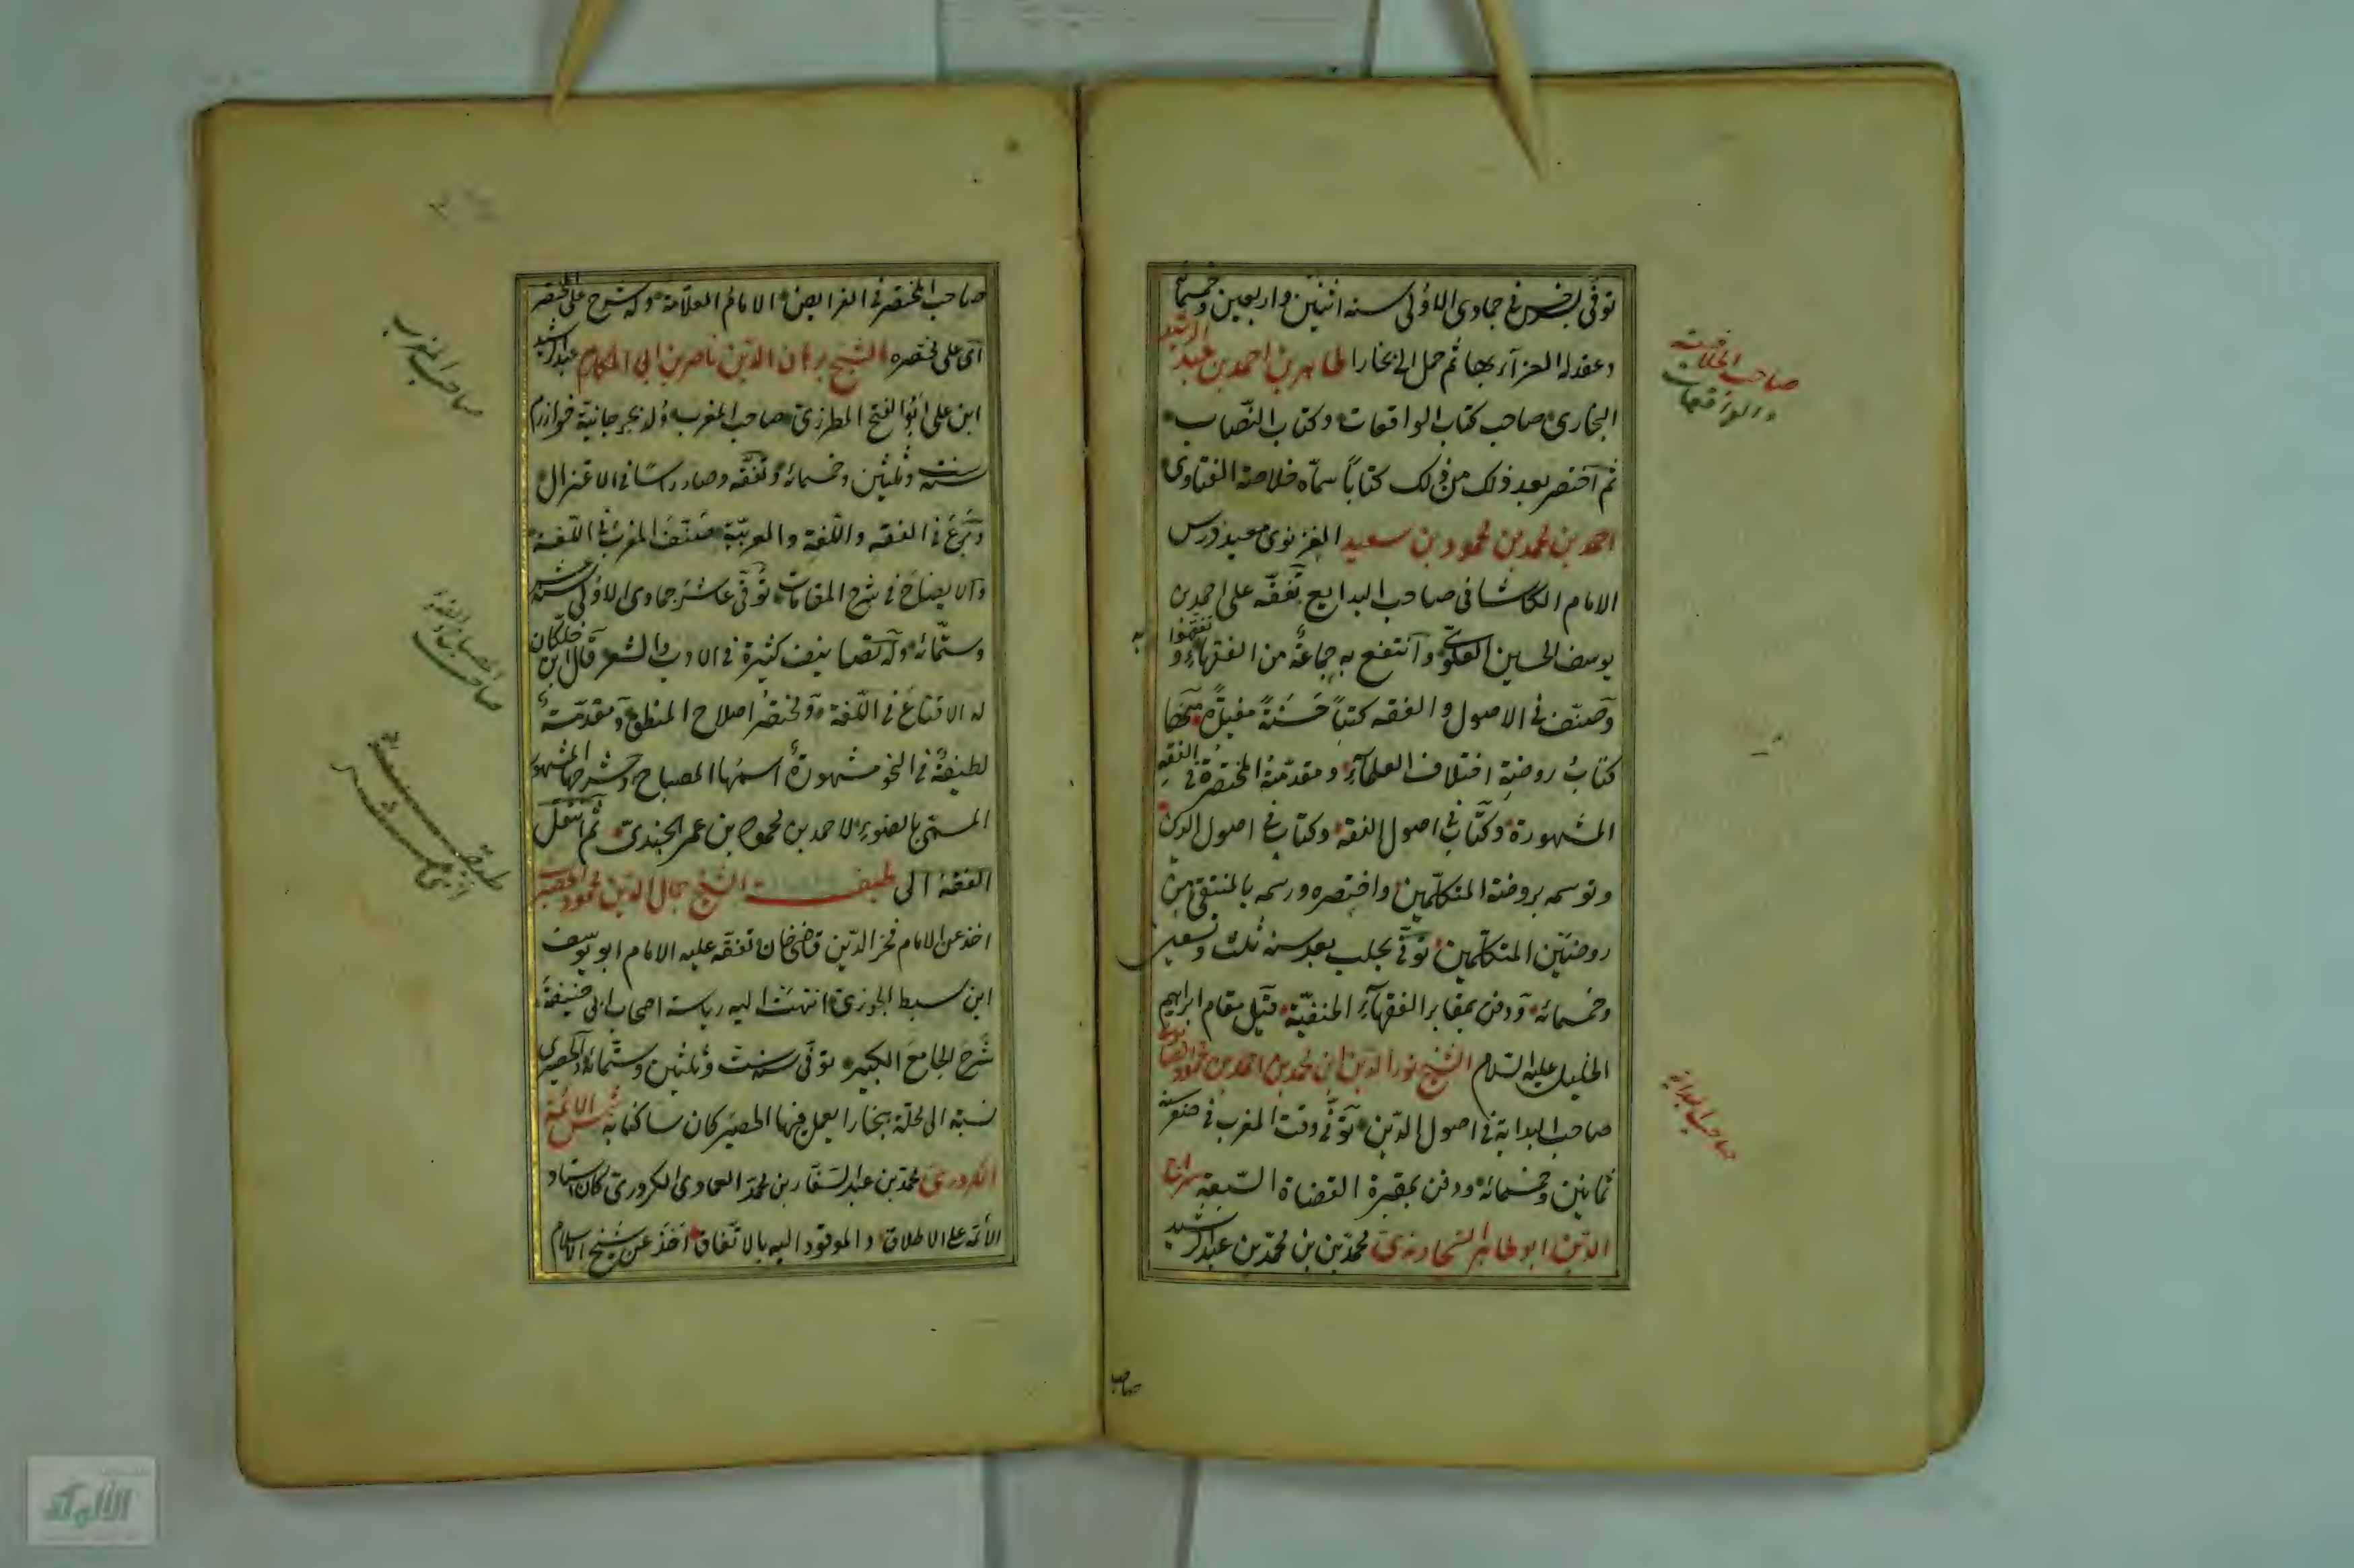 توفّي بسرخس في جمادى الاولى سنة اثنين واربعين وخمسمائة
وعقد له العزاء بها ثم حمل الى بخارا طاهر بن احمد بن عبد الرشيد
البخاري صاحب كتاب الواقعات وكتاب النّصاب
ثم اختصر بعد ذلك من ذلك كتاباً سمّاه خلاصة الفتاوى
احمد بن محمد بن محمود بن سعيد الغزنوى معيد درس
الامام الكاشانى صاحب البدايع تفقّه على احمد بن
يوسف الحسين العلوىّ وانتفع به جماعةٌ من الفقهاء و تفقهوا به
وصنّف في الاصول والفقه كتباً حَسَنةً مفيدةً منها
كتابُ روضة اختلاف العلماء ومقدّمتُه المختصرة في الفقه
المشهورة وكتاب في اصول الفقه وكتاب في اصول الدين
وتوسمه بروضة المتكلّمين واختصره ورسمه بالمنتقى من
روضة المتكلّمين توفّي بحلب بعد سنة ثلث وتسعين
وخمسمائة ودفن بمقابر الفقهاء الحنفيّة قبل مقام ابراهيم
الخليل عليه السّلام الشيخ نور الدين ابن محمد بن احمد بن محمود الصابوني
صاحب البداية في اصول الدّين توفّي وقت المغرب في صفر سنة
ثمانين وخمسمائة ودفن بمقبرة القضاة السّبعة سراج
الدّين ابو طاهر السّجاوندى محمّد بن محمّد بن عبد الرشيد
صاحب الخلاصة
والواقعات
صاحب البداية
صاحب
صاحب المختصر في الفرايض الامام العلّامة وله شرح على المختصر
اى على مختصره الشيخ برهان الدّين ناصر بن ابى المكارم عبد السيد
ابن على ابو الفتح المطرزىّ صاحب المغرب ولد بجرجانية خوارزم
سنة ست وثلثين وخمسمائة وتفقّه وصار رأسًا في الاعتزال
وبَرَعَ في الفقه واللّغة والعربيّة صنّف المغرب في اللّغة
والايضاح في شرح المقامات توفّي عاشر جمادى الاولى سنة عشر
وستّمائة وله تصانيف كثيرة في الادب والشعر قال ابن خلكان
له الاقناع في اللّغة ومختصر اصلاح المنطق ومقدّمتهُ
لطيفةٌ في النحو مشهورةٌ اسمُها المصباح وشرحها المشهور
المسمّى بالضوء لاحمد بن محمود بن عمر الجندىّ ثم انتقل
الفقه الى طبقة الشيخ جمال الدّين محمود الحصيرى
اخذ عن الامام فخر الدّين قاضى خان وتفقّه عليه الامام ابو يوسف
ابن سبط الجوزى انتهت اليه رياسة اصحاب ابى حنيفة
شَرَحَ الجامعَ الكبير توفّي سنة ست وثلثين وستّمائة والحصيرى
نسبة الى محلّة ببخارا يعمل فيها الحصير كان ساكنا به شمس الائمّة
الكردرىّ محمّد بن عبد السّتار بن محمّد العمادى الكردرىّ كان استاد
الأئمّة على الاطلاق والموفود اليه بالاتّفاق اخذ عن شيخ الاسلام
صاحب المغرب